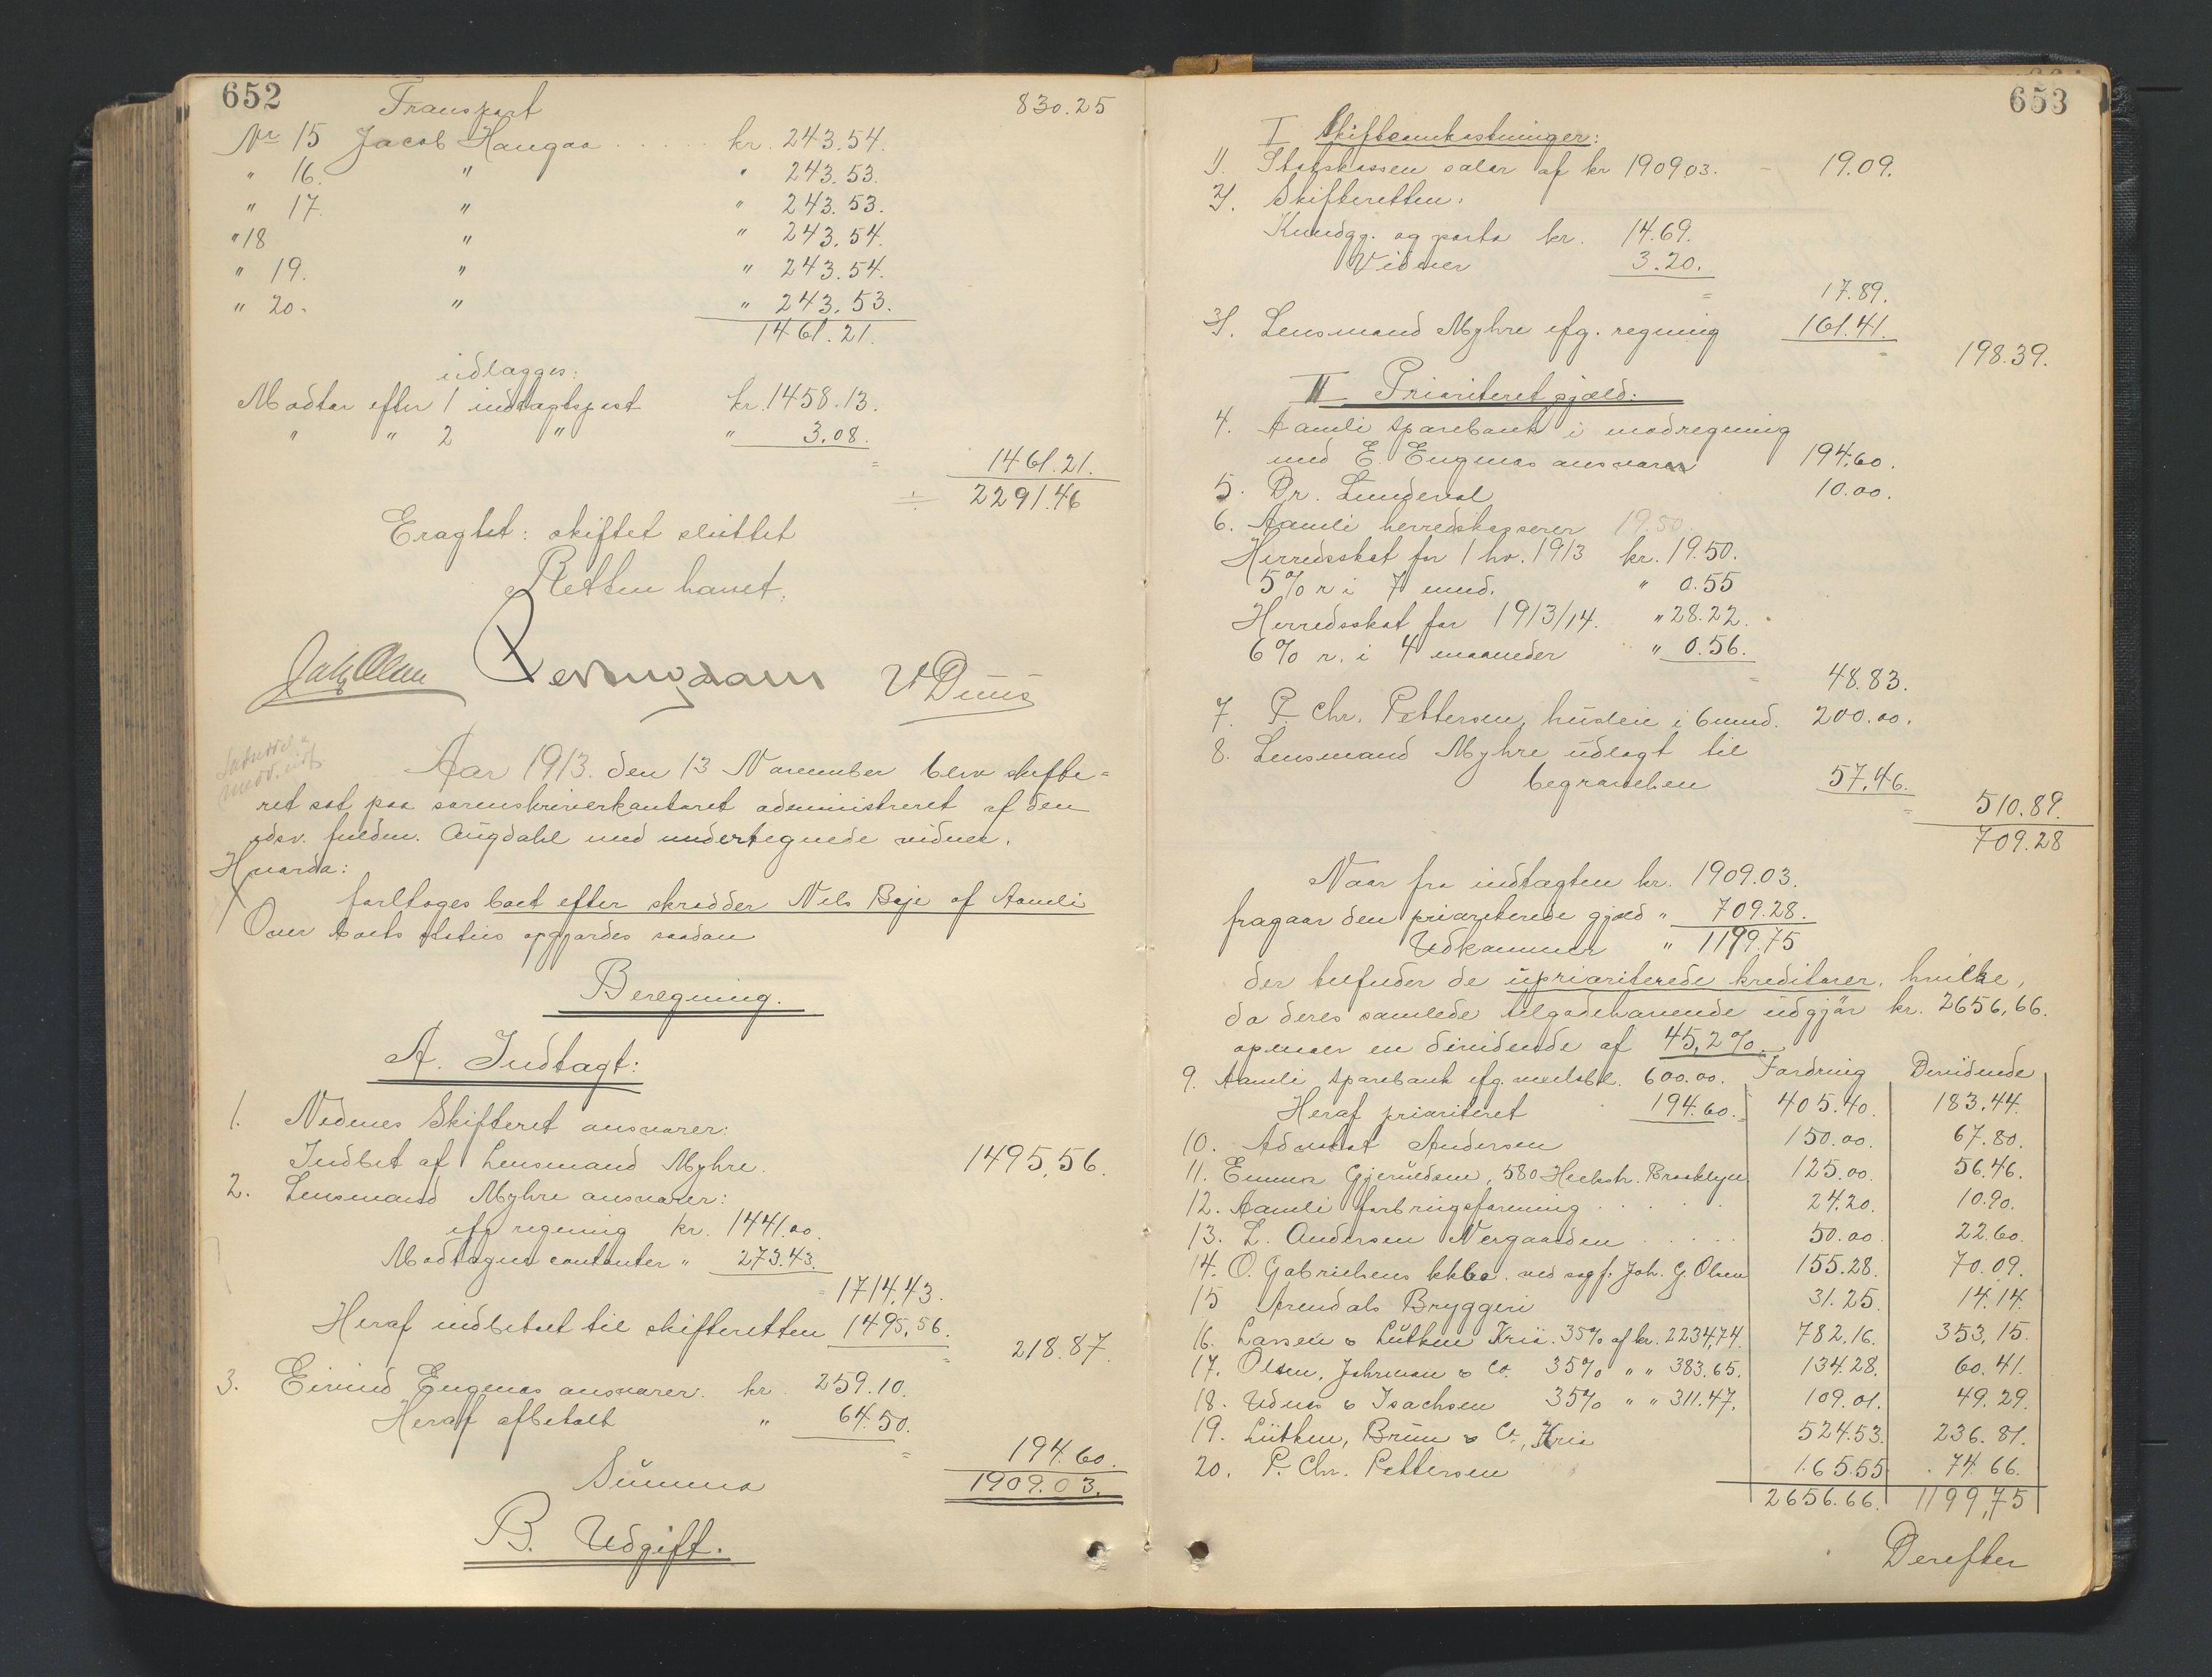 652
Transport 830.25
Nr 15 Jacob Haugaa kr. 243.54.
" 16. " " 243.53.
" 17. " " 243.53.
" 18 " " 243.54.
" 19. " " 243.54.
" 20. " " 243.53.
1461.21.
udlægges:
Modtar efter 1 indtægtspost kr. 1458.13.
" " 2 " " 3.08.
= 1461.21.
÷ 2291.46
Eragtet: skiftet sluttet
Retten hævet.
Aar 1913 den 13 November blev skifte=
ret sat paa sorenskriverkontoret administreret af den
edsv. fuldm. Augdahl med undertegnede vidner.
Hvorda:
foretoges boet efter skrædder Nils Boje af Aamli
Over boets status opgjordes saadan
Beregning.
A. Indtægt:
1. Nedenes Skifteret ansvarer:
Indbet af Lensmand Myhre. 1495,56.
2. Lensmand Myhre ansvarer:
efg regning kr. 1441.00.
Modtagne contanter " 273.43.
1714.43.
Heraf indbetalt til skifteretten 1495,56.
= 218.87.
3. Eivind Engenes ansvarer. kr. 259.10.
Heraf afbetalt " 64.50.
= 194.60.
Summa 1909.03.
B. Udgift.
653
I Skifteomkostninger:
1). Statskassen salær af kr 1909.03. - 19.09.
2). Skifteretten:
Kundgj. og porto kr. 14.69.
Vidner 3.20.
= 17.89.
3). Lensmand Myhre efg. regning 161.41.
198.39.
II Prioriteret gjæld:
4. Aamli sparebank i modregning
med E. Engenes ansvarer 194.60.
5. Dr. Lundeval 10.00.
6. Aamli herredskasserer 19.50.
Herredsskat for 1 hv. 1913 kr. 19.50.
5% r i 7 mnd. " 0.55
Herredsskat for 1913/14. " 28.22.
6% r. i 4 maaneder " 0.56.
= 48.83.
7. P. Chr. Pettersen, husleie i 6 mnd. 200.00.
8. Lensmand Myhre udlagt til
begravelsen 57.46.
510.89.
709.28
Naar fra indtægten kr. 1909.03.
fragaar den prioriterede gjæld " 709.28.
Udkommer " 1199.75
der tilfalder de uprioriterede kreditorer, hvilke,
da deres samlede tilgodehavende udgjør kr. 2656,66.
opnaar en dividende af 45,2%.
Fordring Dividende
9. Aamli sparebank efg. vexelobl. 600.00.
Heraf prioriteret 194.60. 405.40. 183.44.
10. Advokat Andersen 150.00. 67.80.
11. Emma Gjeruldsen, 580 Heckstr. Brooklyn 125.00. 56.46.
12. Aamli forbrugsforening 24.20. 10.90.
13. L. Andersen Nergaarden 50.00. 22.60.
14. O. Gabrielsens kkbo. ved sagf. Joh. G. Olsen 155.28. 70.09.
15 Arendals Bryggeri 31.25. 14.14.
16. Larsen & Lütken Kria. 35% af kr. 2234,74. 782.16. 353,15.
17. Olsen, Johrman & Co. 35% " " 383.65. 134.28. 60.41.
18. Udnes & Isachsen 35% " " 311.47. 109.01. 49.29.
19. Lütken, Bruun & Co., Kria 524.53. 236.81.
20. P. Chr. Pettersen 165.55 74.66.
2656.66. 1199,75
Derefter